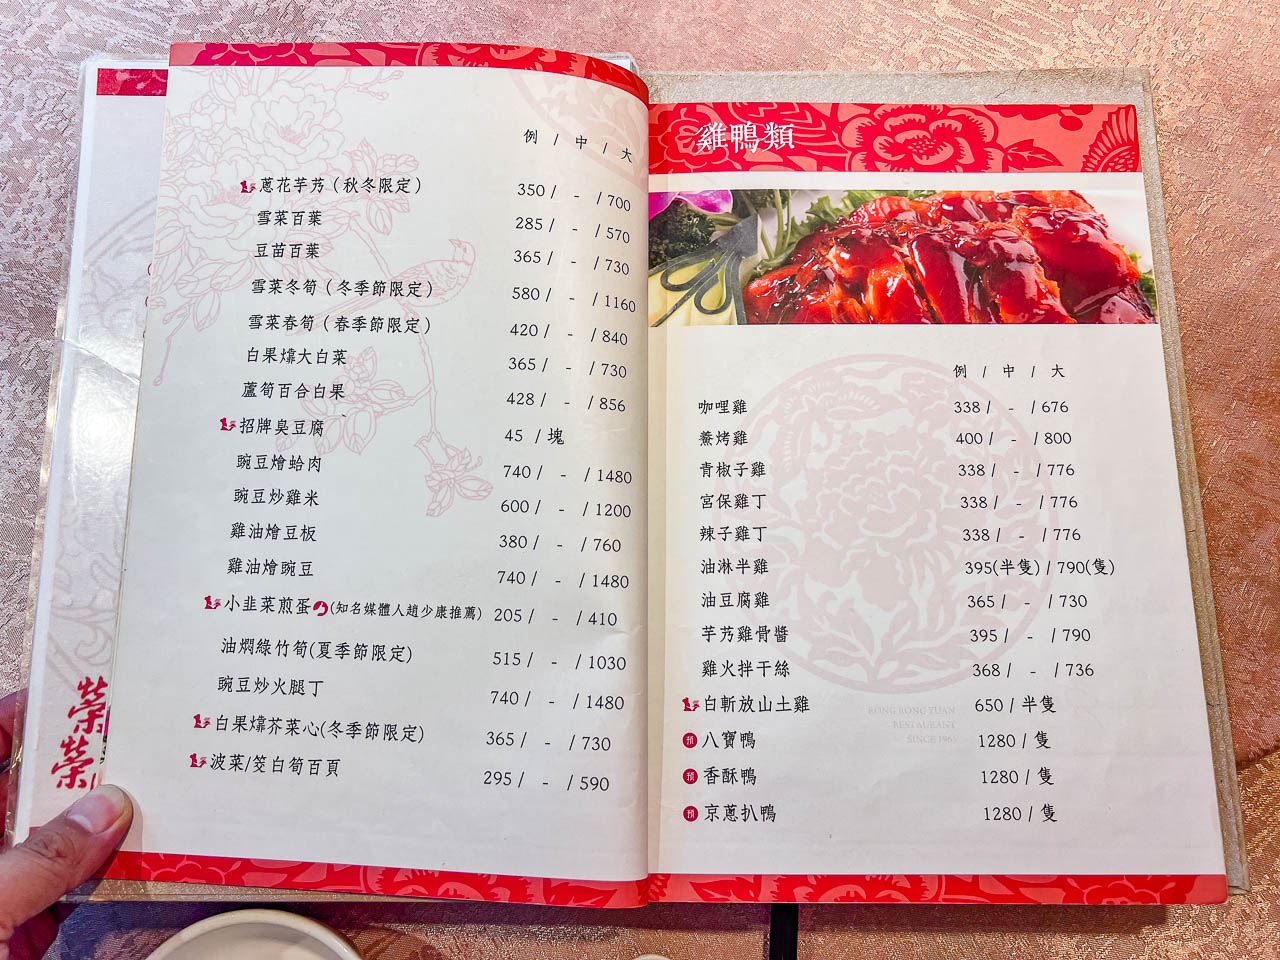 例 / 中 / 大
蔥花芋艿(秋冬限定) 350 / - / 700
雪菜百葉 285 / - / 570
豆苗百葉 365 / - / 730
雪菜冬筍(冬季節限定) 580 / - / 1160
雪菜春筍(春季節限定) 420 / - / 840
白果㸆大白菜 365 / - / 730
蘆筍百合白果 428 / - / 856
招牌臭豆腐 45 / 塊
豌豆燴蛤肉 740 / - / 1480
豌豆炒雞米 600 / - / 1200
雞油燴豆板 380 / - / 760
雞油燴豌豆 740 / - / 1480
小韭菜煎蛋(知名媒體人趙少康推薦) 205 / - / 410
油燜綠竹筍(夏季節限定) 515 / - / 1030
豌豆炒火腿丁 740 / - / 1480
白果㸆芥菜心(冬季節限定) 365 / - / 730
波菜/筊白筍百頁 295 / - / 590
榮榮
雞鴨類
例 / 中 / 大
咖哩雞 338 / - / 676
薰烤雞 400 / - / 800
青椒子雞 338 / - / 776
宮保雞丁 338 / - / 776
辣子雞丁 338 / - / 776
油淋半雞 395(半隻) / 790(隻)
油豆腐雞 365 / - / 730
芋艿雞骨醬 395 / - / 790
雞火拌干絲 368 / - / 736
白斬放山土雞 650 / 半隻
預 八寶鴨 1280 / 隻
預 香酥鴨 1280 / 隻
預 京蔥扒鴨 1280 / 隻
RONG RONG YUAN
RESTAURANT
SINCE 1965